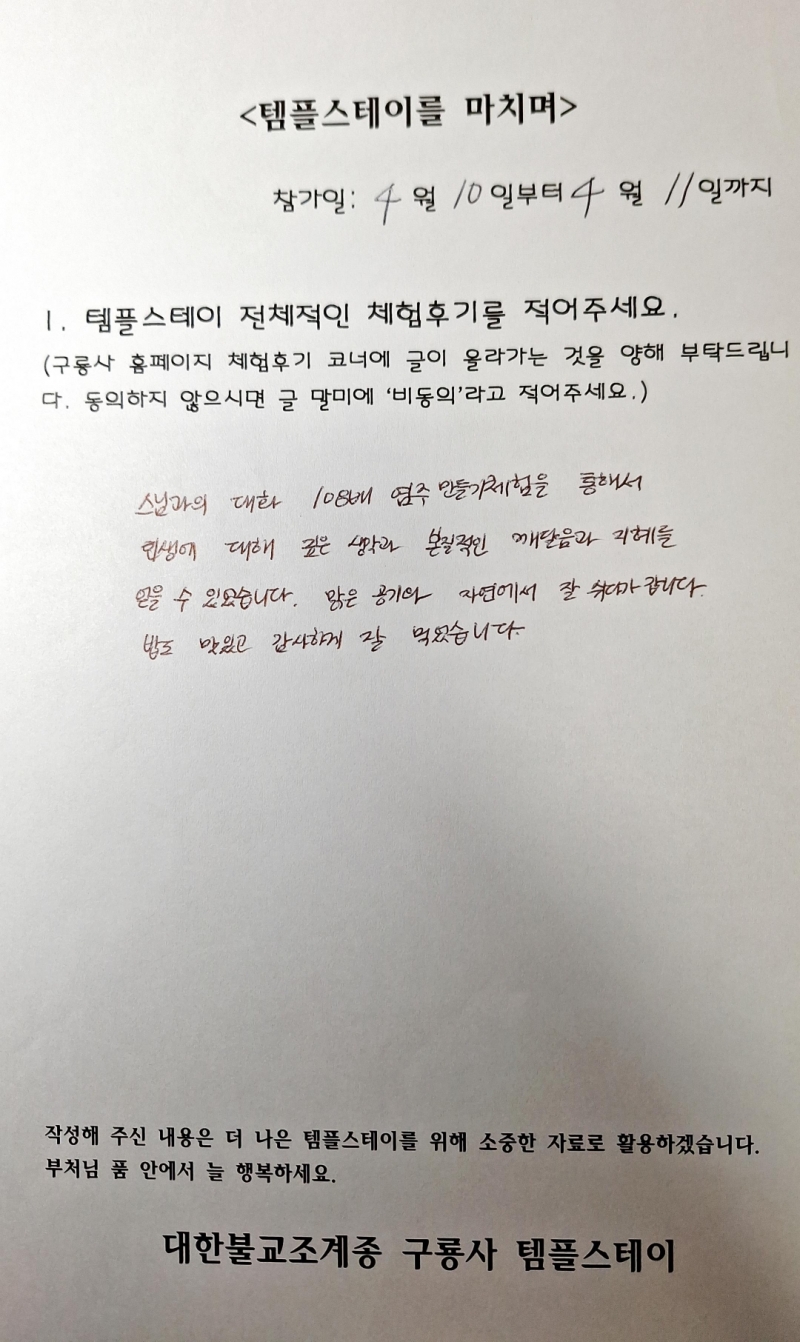 <템플스테이를 마치며>
참가일: 4 월 10 일부터 4 월 11 일까지
1. 템플스테이 전체적인 체험후기를 적어주세요.
(구룡사 홈페이지 체험후기 코너에 글이 올라가는 것을 양해 부탁드립니
다. 동의하지 않으시면 글 말미에 ‘비동의’라고 적어주세요.)
스님과의 대화 108배 염주 만들기체험을 통해서
인생에 대해 깊은 생각과 본질적인 깨달음과 지혜를
얻을 수 있었습니다. 맑은 공기와 자연에서 잘 쉬다가 갑니다.
밥도 맛있고 감사하게 잘 먹었습니다.
작성해 주신 내용은 더 나은 템플스테이를 위해 소중한 자료로 활용하겠습니다.
부처님 품 안에서 늘 행복하세요.
대한불교조계종 구룡사 템플스테이